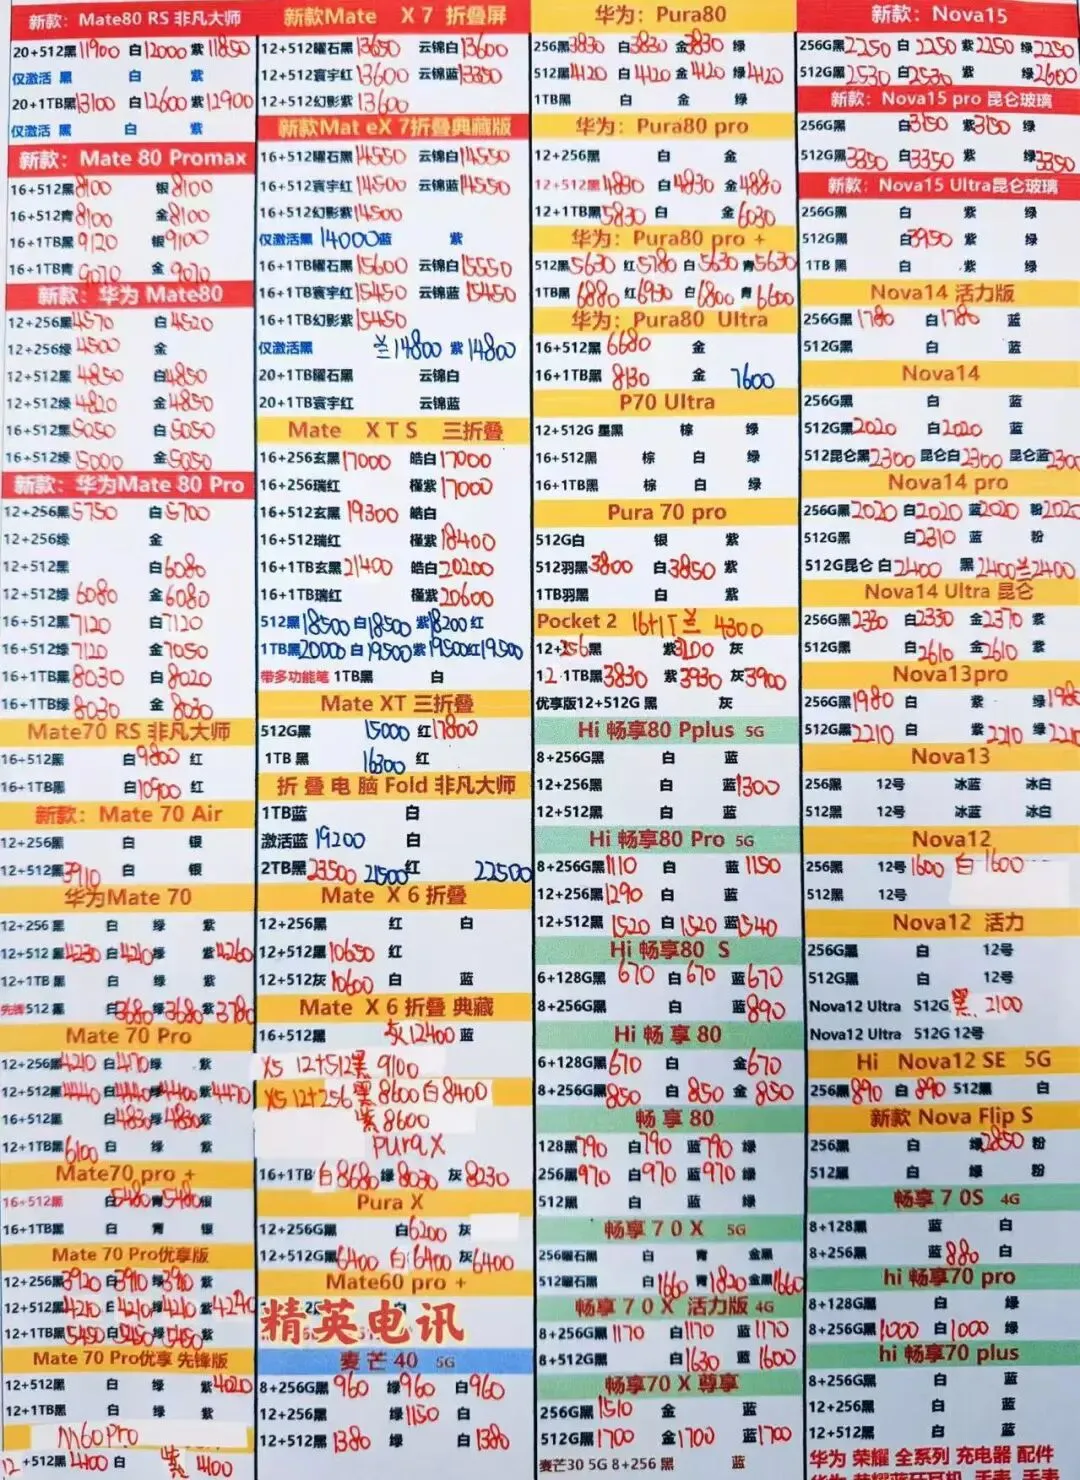 新款：Mate80 RS 非凡大师
20+512黑11900 白12000 紫11850
仅激活 黑 白 紫
20+1TB黑13100 白12600 紫12900
仅激活 黑 白 紫
新款：Mate 80 Promax
16+512黑8100 银8100
16+512青8100 金8100
16+1TB黑9120 银9100
16+1TB青9070 金9070
新款：华为 Mate80
12+256黑4570 白4520
12+256绿4500 金
12+512黑4850 白4850
12+512绿4820 金4850
16+512黑5050 白5050
16+512绿5000 金5050
新款：华为Mate 80 Pro
12+256黑5750 白5700
12+256绿 金
12+512黑 白6080
12+512绿6080 金6080
16+512黑7120 白7120
16+512绿7120 金7050
16+1TB黑8030 白8020
16+1TB绿8030 金8030
Mate70 RS 非凡大师
16+512黑 白9800 红
16+1TB黑 白10900 红
新款：Mate 70 Air
12+256黑 白 银
12+512黑3910 白 银
华为Mate 70
12+256 黑 白 绿 紫
12+512 黑4230 白4210绿 紫4260
12+1TB黑 白 绿 紫
先锋512 黑 白3680绿3680 紫3780
Mate 70 Pro
12+256黑4210 白4170绿 紫
12+512黑4440 白4440绿4400 紫4470
16+512黑 白4830绿4830紫
12+1TB黑6100 白 绿 紫
Mate70 pro +
16+512黑 白5480青5480银
16+1TB黑 白 青 银
Mate 70 Pro优享版
12+256黑3920 白3910绿3910 紫
12+512黑4210 白4210绿4210 紫4240
12+1TB黑5450 白5450绿5450 紫
Mate 70 Pro优享 先锋版
12+512黑 白 绿 紫4020
12+1TB黑 白 绿 紫
M60Pro
12+512黑4400 白 紫4100
新款Mate X 7 折叠屏
12+512曜石黑13650 云锦白13600
12+512寰宇红13600 云锦蓝13350
12+512幻影紫13600
新款Mat eX 7折叠典藏版
16+512曜石黑14550 云锦白14550
16+512寰宇红14500 云锦蓝14550
16+512幻影紫14500
仅激活黑 14000蓝 紫
16+1TB曜石黑15600 云锦白15550
16+1TB寰宇红15450 云锦蓝15450
16+1TB幻影紫15450
仅激活黑 兰14800 紫14800
20+1TB曜石黑 云锦白
20+1TB寰宇红 云锦蓝
Mate X T S 三折叠
16+256玄黑17000 皓白17000
16+256瑞红 槿紫17000
16+512玄黑19300 皓白
16+512瑞红 槿紫18400
16+1TB玄黑21400 皓白20200
16+1TB瑞红 槿紫20600
512黑18500 白18500 紫18200 红
1TB黑20000 白19500紫19500红19500
带多功能笔 1TB黑 白
Mate XT 三折叠
512G黑 15000 红17800
1TB 黑 16300 红
折 叠 电 脑 Fold 非凡大师
1TB蓝 白
激活蓝19200 白
2TB黑23500 21500红 22500
Mate X 6 折叠
12+256黑 红 白
12+512黑10650 红
12+512灰10600 白 蓝
Mate X 6 折叠 典藏
16+512黑 灰12400 蓝
X5 12+512黑 9100
X5 12+256 黑8600 白8400
紫8600
PuraX
16+1TB 白8680绿8030 灰8230
Pura X
12+256G黑 白6200 灰
12+512G黑6400 白6400 灰6400
Mate60 pro +
精英电讯
麦芒 40 5G
8+256G黑960 绿960 白960
12+256黑 绿1150 白
12+512黑1380 绿 白1380
华为：Pura80
256黑3830 白3830 金3830 绿
512黑4120 白4120 金4120 绿4120
1TB黑 白 金 绿
华为：Pura80 pro
12+256黑 白 金
12+512黑4830 白4830 金4880
12+1TB黑5830 白 金6030
华为：Pura80 pro +
512黑5630 红5780 白5630 青5630
1TB黑6880 红6930 白6800 青6600
华为：Pura80 Ultra
16+512黑6680 金
16+1TB黑 8130 金 7600
P70 Ultra
12+512G 星黑 棕 绿
16+512黑 棕 白 绿
16+1TB黑 棕 白 绿
Pura 70 pro
512G白 银 紫
512羽黑3800 白3850 紫
1TB羽黑 白 紫
Pocket 2 16+1T 兰 4300
12+256黑 紫3100 灰
12 1TB黑3830 紫3930 灰3900
优享版12+512G 黑 灰
Hi 畅享80 Pplus 5G
8+256G黑 白 蓝
12+256黑 白 蓝1300
12+512黑 白 蓝
Hi 畅享80 Pro 5G
8+256G黑1110 白 蓝 1150
12+256黑1290 白 蓝
12+512黑1520 白1520 蓝1540
Hi 畅享80 S
6+128G黑 670 白670 蓝670
8+256G黑 白 蓝890
Hi 畅 享 80
6+128G黑670 白 金670
8+256G黑850 白850 金850
畅 享 80
128黑790 白790 蓝790 绿
256黑970 白970 蓝970 绿
512黑 白 蓝 绿
畅享 7 0 X 5G
256曜石黑 白 青 金黑
512曜石黑 白1660 青1820金黑1660
畅享 7 0 X 活力版 4G
8+256G黑1170 白1170 蓝1170
8+512G黑 白1630 蓝1600
畅享70 X 尊享
256G黑1510 金 蓝
512G黑1700 金1700 蓝1700
麦芒30 5G 8+256 黑 蓝
新款：Nova15
256G黑2250 白 2250 紫2250 绿2250
512G黑2530 白2530 紫 绿2600
新款：Nova15 pro 昆仑玻璃
256G黑 白3150 紫3150 绿
512G黑3350 白3350 紫 绿3350
新款：Nova15 Ultra昆仑玻璃
256G黑 白 紫 绿
512G黑 白3950 紫 绿
1TB 黑 白 紫 绿
Nova14 活力版
256G黑1780 白1780 蓝
512G黑 白 蓝
Nova14
256G黑 白 蓝
512G黑2020 白2020 蓝
512昆仑黑2300 昆仑白2300 昆仑蓝2300
Nova14 pro
256G黑2020 白2020 蓝2020 粉2020
512G黑 白2310 蓝 粉
512G昆仑 白2400 黑2400兰2400
Nova14 Ultra 昆仑
256G黑2330 白2330 金2370 紫
512G黑 白2610 金2610 紫
Nova13pro
256G黑1980 白 紫 绿1980
512G黑2210 白 紫2210 绿2210
Nova13
256黑 12号 冰蓝 冰白
512黑 12号 冰蓝 冰白
Nova12
256黑 12号1600 白 1600
512黑 12号
Nova12 活力
256G黑 白 12号
512G黑 白 12号
Nova12 Ultra 512G 黑. 2100
Nova12 Ultra 512G 12号
Hi Nova12 SE 5G
256黑890 白890 512黑 白
新款 Nova Flip S
256黑 白 绿2850 粉
512黑 白 绿 粉
畅享 7 0S 4G
8+128黑 蓝 白
8+256黑 蓝880 白
hi 畅享70 pro
8+128G黑 白 绿
8+256G黑1000 白1000 绿
hi 畅享70 plus
8+256G黑 白 蓝
12+256黑 白 蓝
12+512黑 白 蓝
华为 荣耀 全系列 充电器 配件